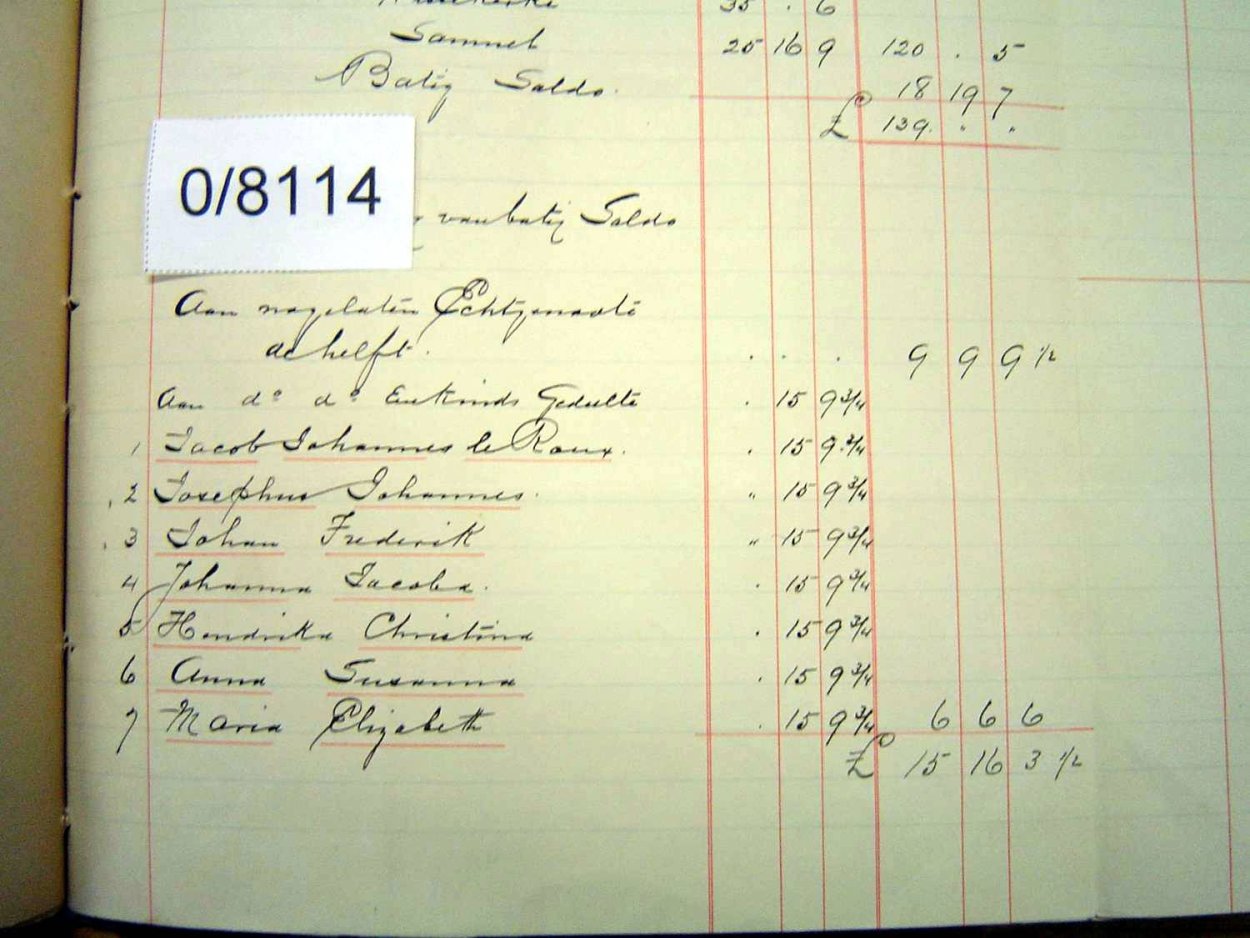 35 . 6
Samuel 25 16 9 120 . 5
Batig Saldo. 18 19 7
£ 139. " "
0/8114
van batig Saldo
Aan nagelaten Echtgenoote
de helft. . . . 9 9 9 1/2
Aan do do Eenkinds Gedeelte . 15 9 3/4
1 Jacob Johannes le Roux. . 15 9 3/4
2 Josephus Johannes. " 15 9 3/4
3 Johan Frederik " 15 9 3/4
4 Johanna Jacoba. . 15 9 3/4
5 Hendrika Christina . 15 9 3/4
6 Anna Susanna . 15 9 3/4
7 Maria Elizabeth . 15 9 3/4 6 6 6
£ 15 16 3 1/2